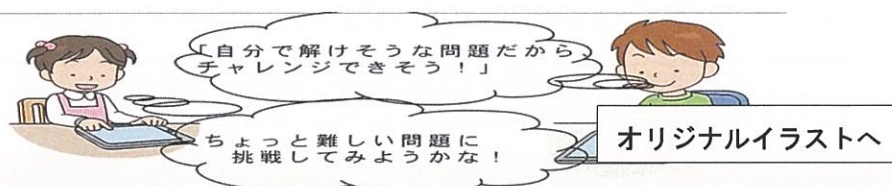 「自分で解けそうな問題だから
チャレンジできそう！」
ちょっと難しい問題に
挑戦してみようかな！
オリジナルイラストへ